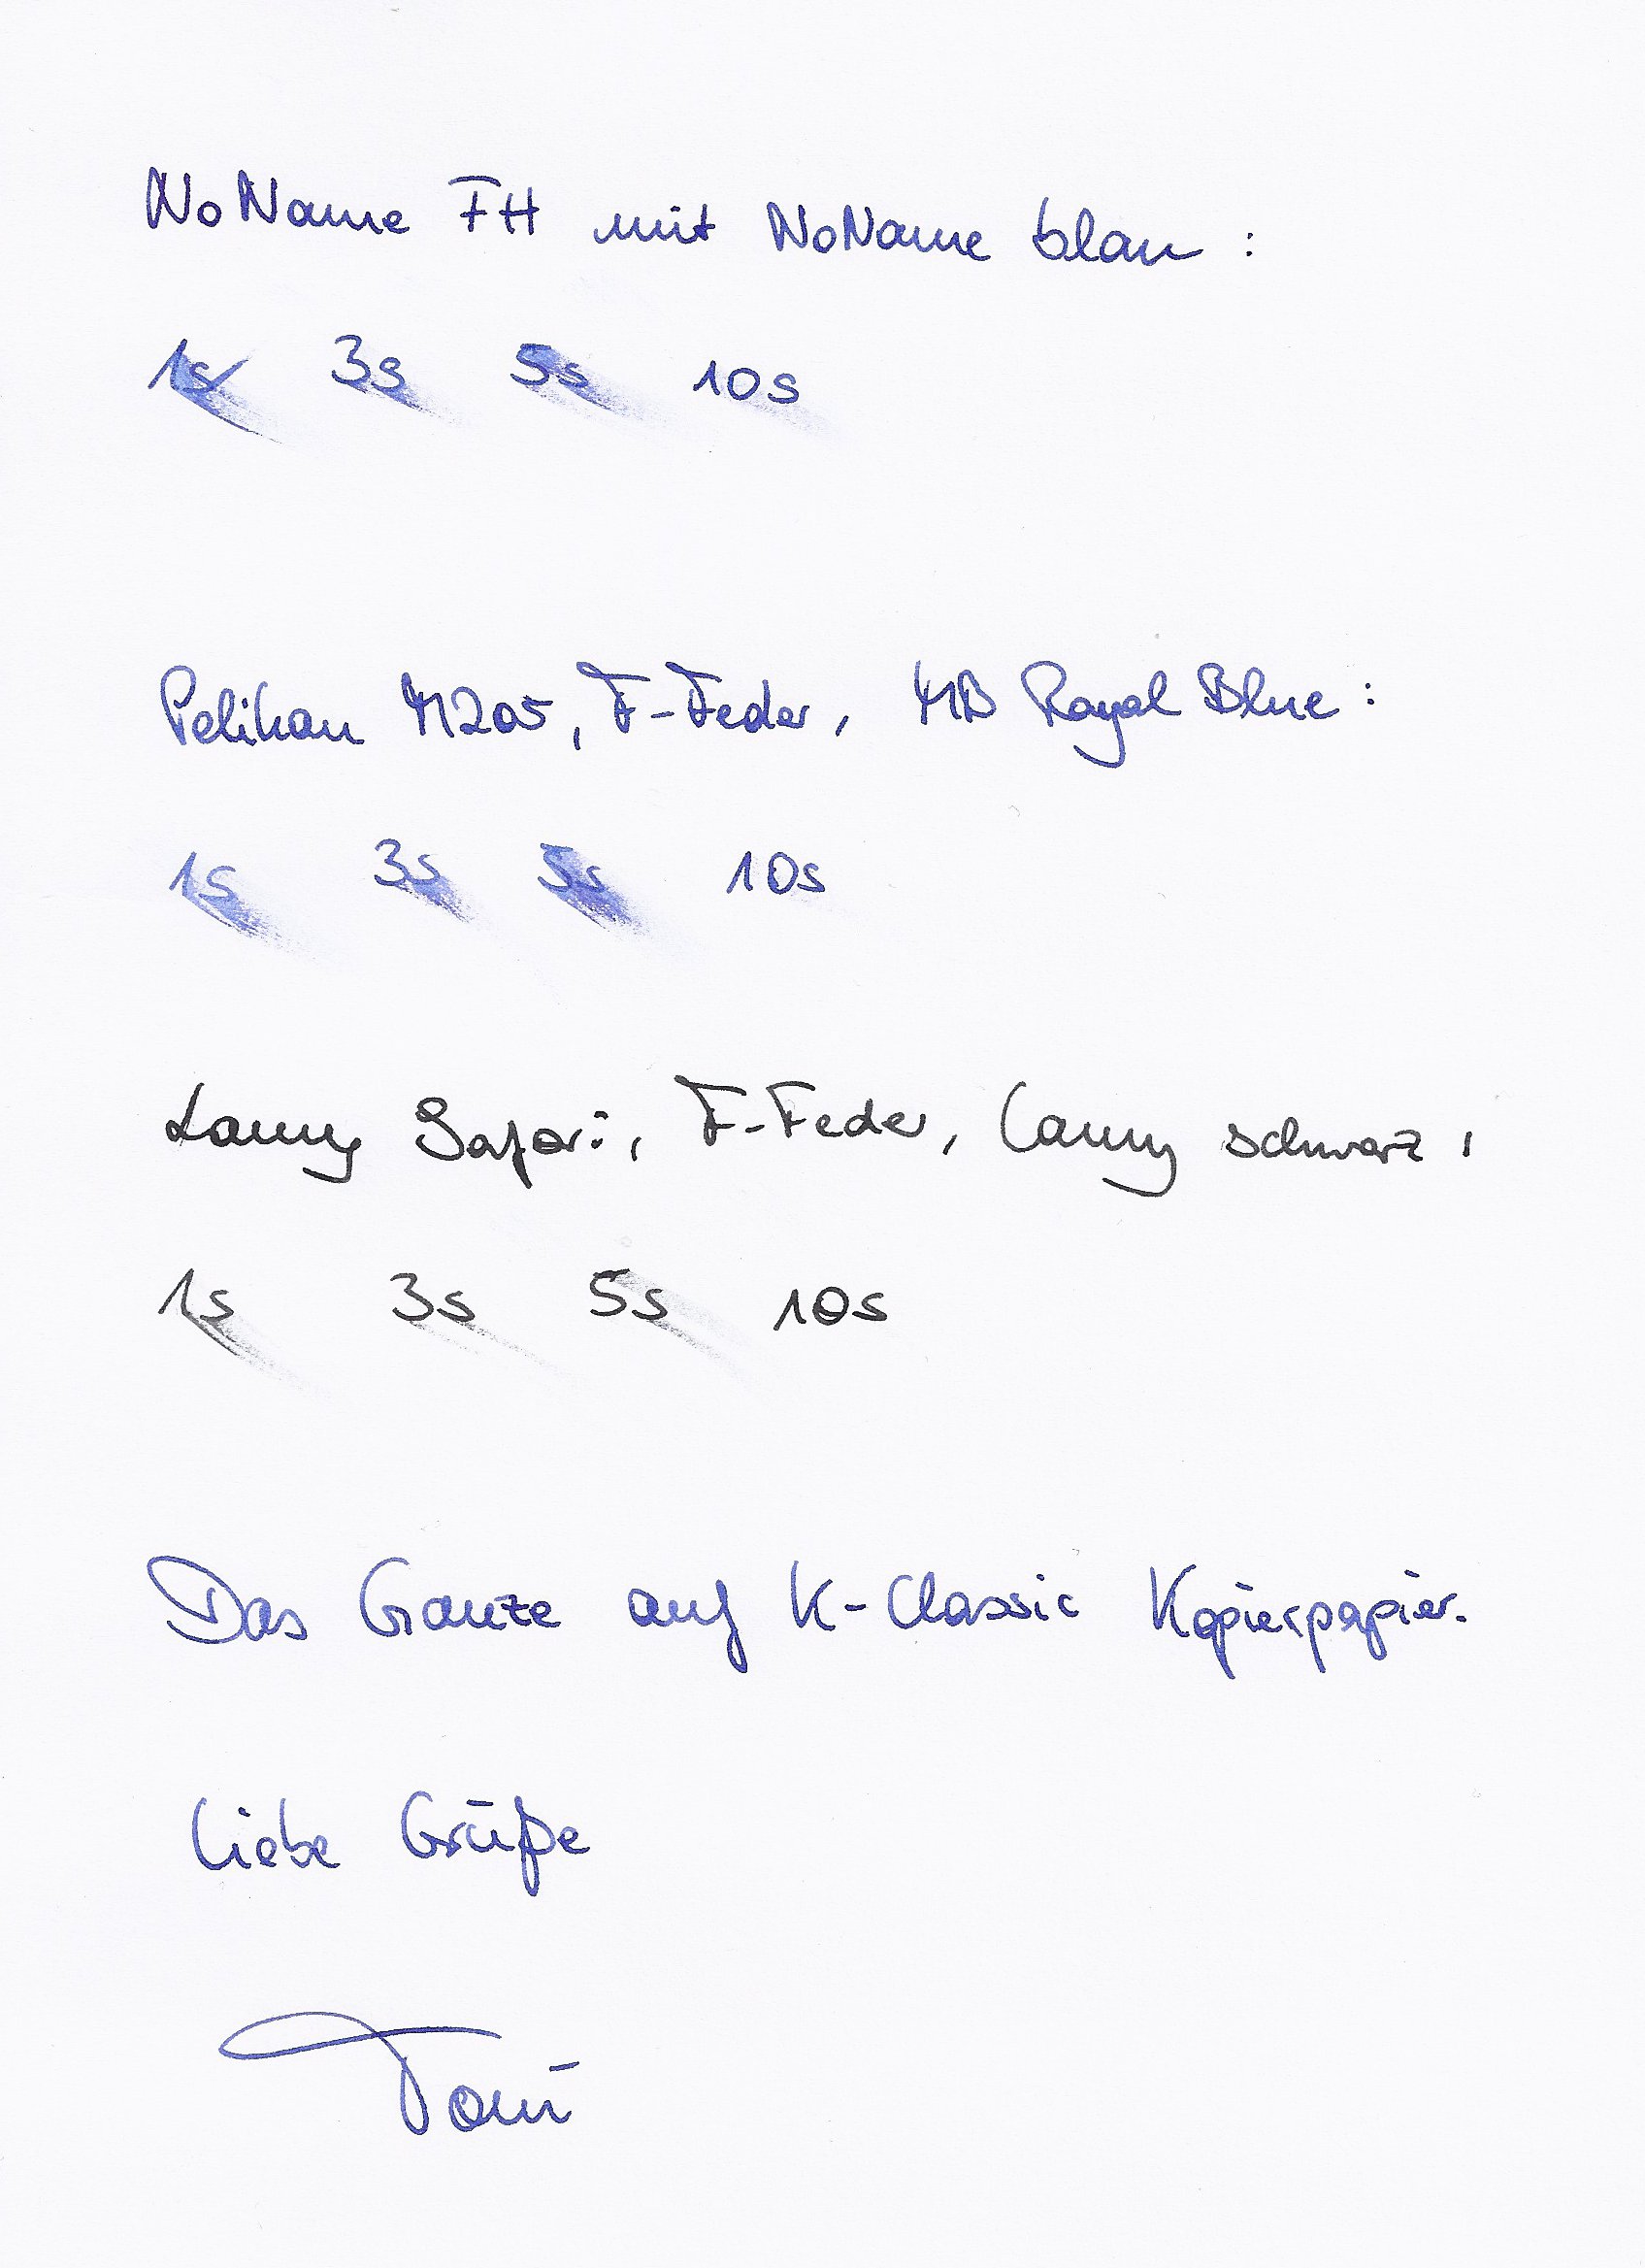 NoName FH mit NoName blau :
1s 3s 5s 10s
Pelikan M205, F-Feder, MB Royal Blue :
1s 3s 5s 10s
Lamy Safari, F-Feder, Lamy schwarz ,
1s 3s 5s 10s
Das Ganze auf K-Classic Kopierpapier.
Liebe Grüße
Toni